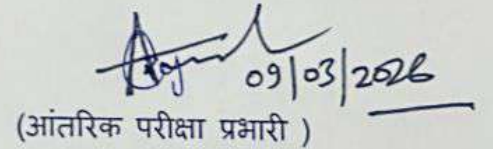 09/03/2026
(आंतरिक परीक्षा प्रभारी )